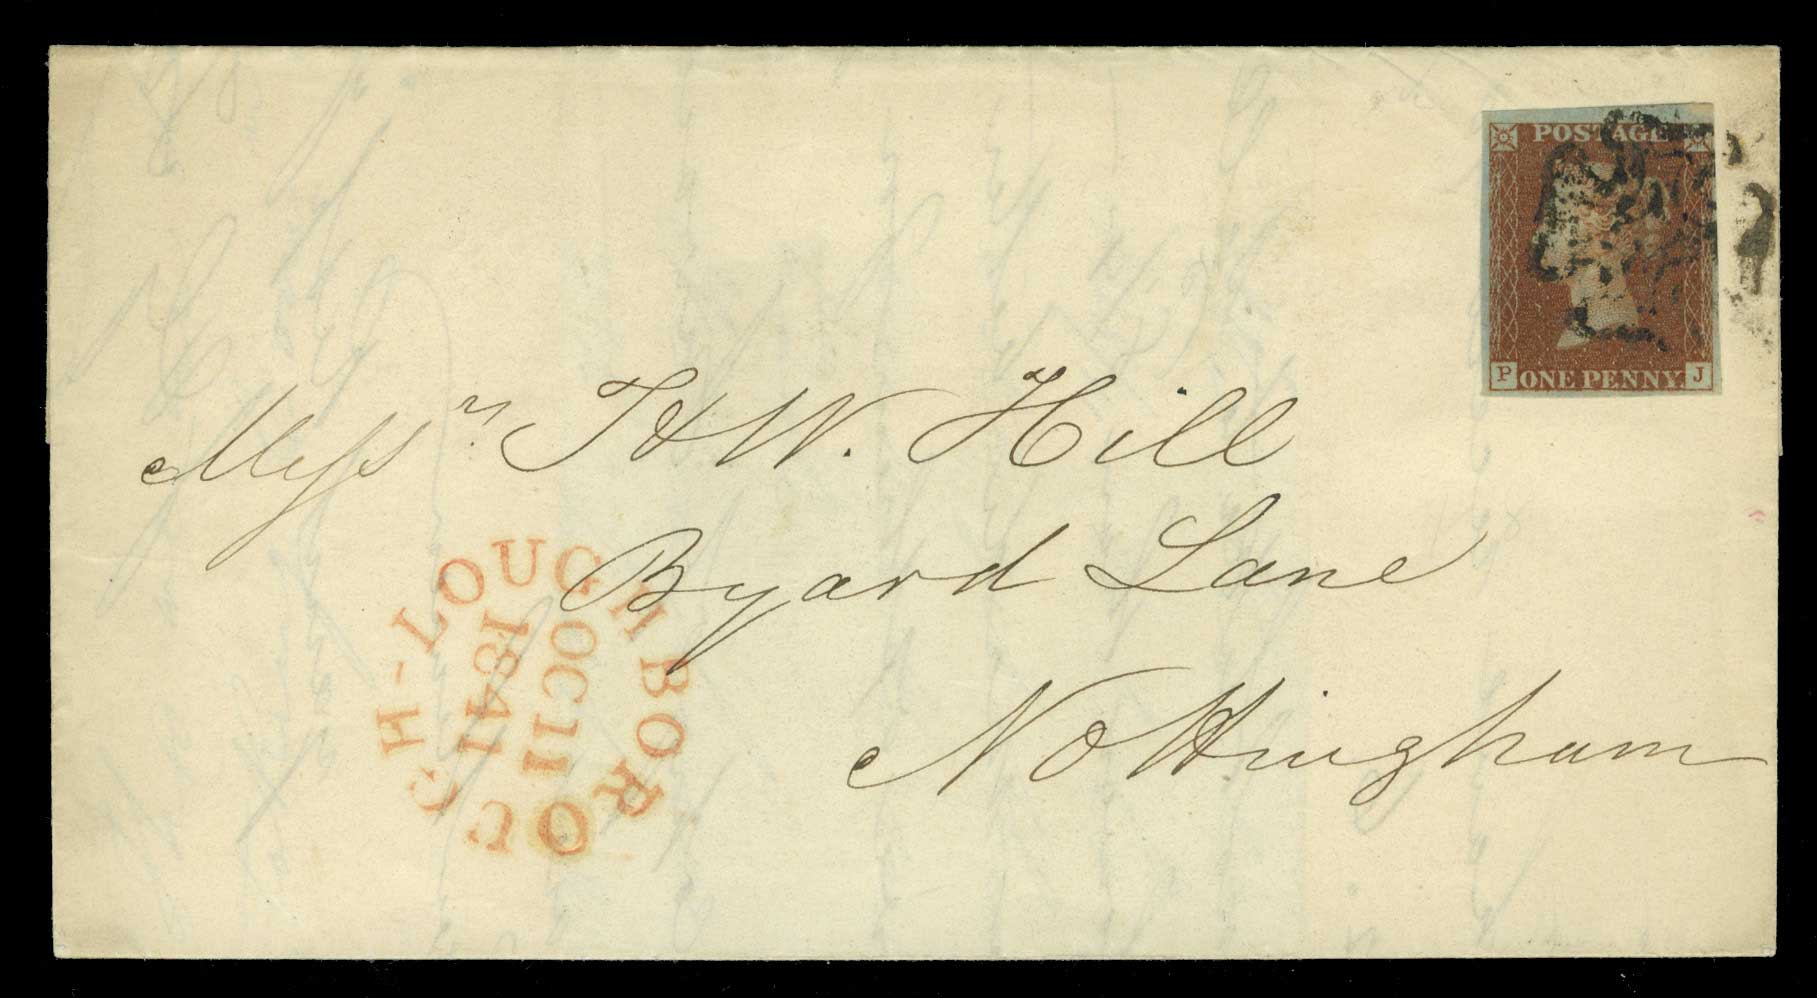 POSTAGE
P ONE PENNY. J
Messrs T & W. Hill
Byard Lane
Nottingham
LOUGHBOROUGH
OC 11
1841